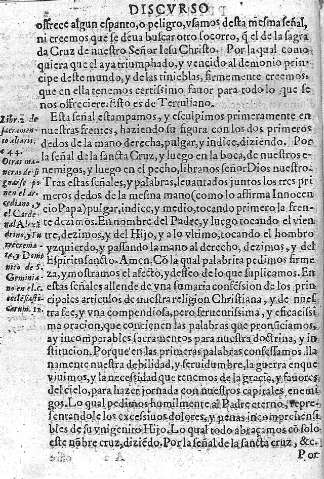 DISCVRSO
ofrece algun espanto, o peligro, vsamos desta mesma señal,
ni creemos que se deua buscar otro socorro, q̃ el de la sagra
da Cruz de nuestro Señor Iesu Christo. Por la qual como
quiera que el aya triumphado, y vencido al demonio prin
cipe deste mundo, y de las tinieblas, firmemente creemos:
que en ella tenemos certissimo fauor para todo lo que se
nos offreciere. Esto es de Tertuliano.
Esta señal estampamos, y esculpimos primeramente en
nuestras frentes, haziendo su figura con los dos primeros
dedos de la mano derecha, pulgar, y indice, diziendo. Por
la señal de la sancta Cruz, y luego en la boca, de nuestros e-
nemigos, y luego en el pecho, libranos señor Dios nuestro.
Tras estas señales, y palabras, leuantados juntos los tres pri
meros dedos de la mesma mano (como lo affirma Innocen
cio Papa) pulgar, indice, y medio, tocando primero la fren
te dezimos. En nombre del Padre, y luego tocando el vien
tre, dezimos, y del Hijo, y a lo vltimo, tocando el hombro
yzquierdo, y passando la mano al derecho, dezimos, y del
Espiritu sancto. Amen. Cõ la qual palabrita pedimos firme
za, y mostramos el afecto, y desseo de lo que suplicamos. En
estas señales allende de vna sumaria confession de los prin
cipales articulos de nuestra religion Christiana, y de nues-
tra fee, y vna compendiosa, pero feruentissima, y eficacissi
ma oracion, que contienen las palabras que pronũciamos,
ay incomparables sacramentos para nuestra doctrina, y in
stitucion. Porque en las primeras palabras confessamos, lla
namente nuestra debilidad, y seruidumbre, la guerra en que
viuimos, y la necessidad que tenemos de la gracia, y fauores
del cielo, para hazer jornada con nuestros capitales enemi
gos. Lo qual pedimos humilmente al Padre eterno, repre
sentandole los excessiuos dolores, y penas incomprehensi
bles de su vnigenito Hijo. Lo qual todo abraçamos cõ solo
este nõbre cruz, diziẽdo. Por la señal de la sancta cruz, &c.
Por
Libr. 2. de
sacramen-
to altaris.
c. 44.
Otras ma
neras de si
gnarse po
nen el
y el Carde
nal